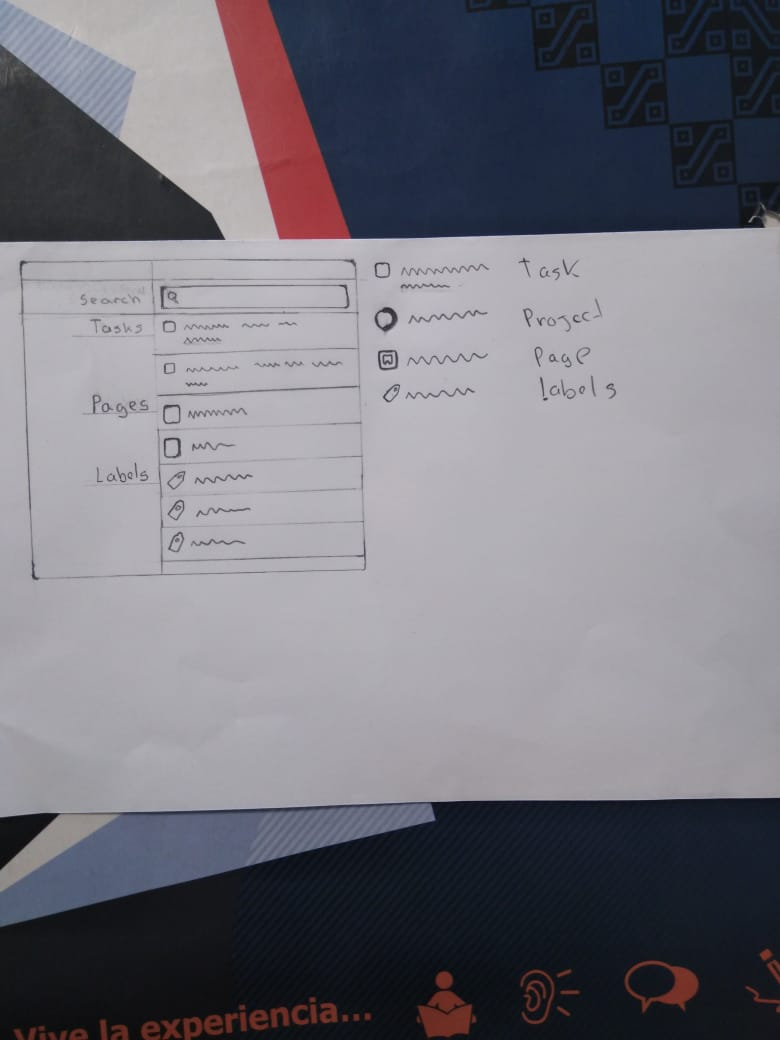 Search
Tasks
Pages
Labels
Task
Project
Page
Labels
Vive la experiencia...